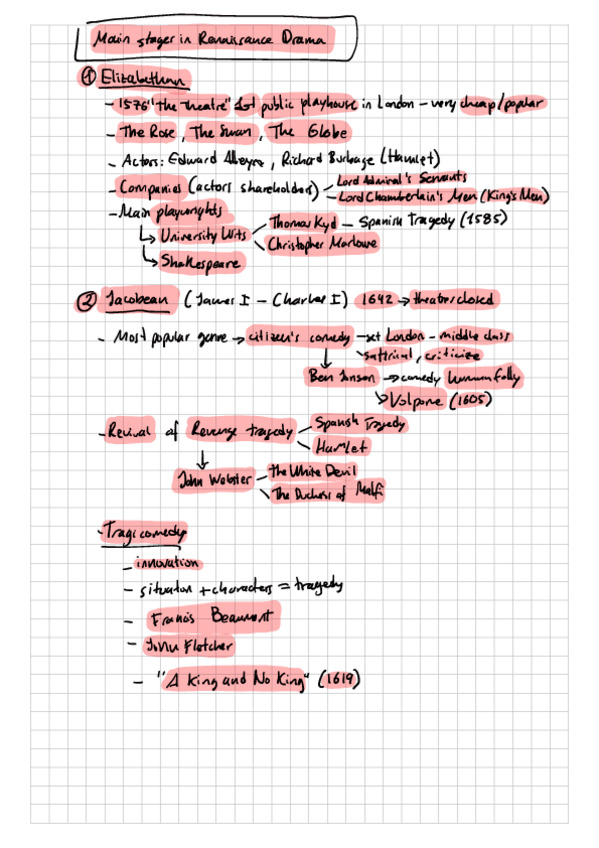 Main stages in Renaissance Drama
① Elizabethan
- 1576 "the Theatre" 1st public playhouse in London - very cheap/popular
- The Rose, The Swan, The Globe
- Actors: Edward Alleyne, Richard Burbage (Hamlet)
- Companies (actors shareholders) - Lord Admiral's Servants
- Lord Chamberlain's Men (King's Men)
- Main playwrights
↳ University Wits - Thomas Kyd - Spanish Tragedy (1585)
- Christopher Marlowe
↳ Shakespeare
② Jacobean (James I - Charles I) 1642 → theatres closed
- Most popular genre → citizen's comedy - set London - middle class
↘ satirical, criticize
↓ Ben Jonson → comedy human folly
↘ Volpone (1605)
- Revival of Revenge tragedy - Spanish Tragedy
- Hamlet
↓ John Webster - The White Devil
- The Duchess of Malfi
- Tragicomedy
- innovation
- situation + characters = tragedy
- Francis Beaumont
- John Fletcher
- "A King and No King" (1619)